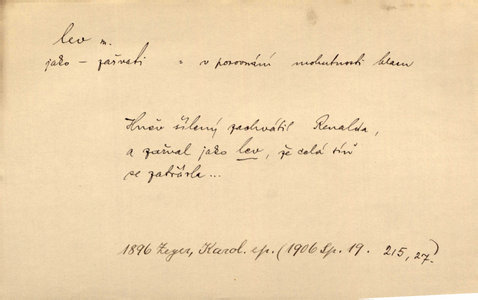 lev m.
jako – zařvati = v porovnání mohutnosti hlasu
Hněv šílený zachvátil Renalda,
a zařval jako lev, že celá síň
se zatřásla...
1896 Zeyer, Karol. ep. (1906 Sp. 19. 215, 27.)